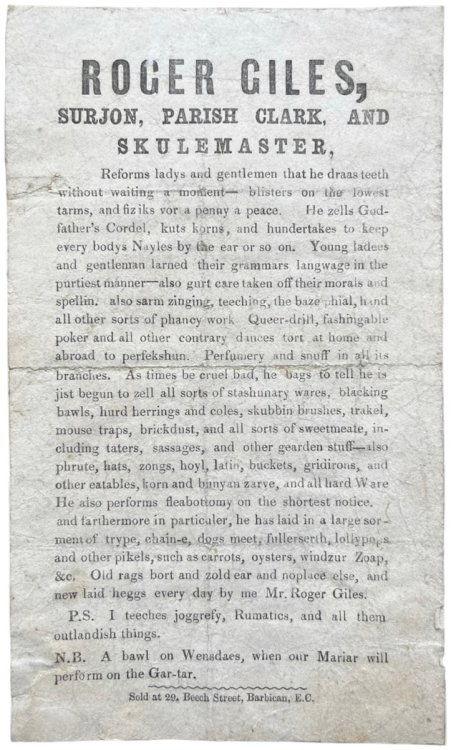 ROGER GILES,
SURJON, PARISH CLARK, AND
SKULEMASTER,
Reforms ladys and gentlemen that he draas teeth
without waiting a moment— blisters on the lowest
tarms, and fiziks vor a penny a peace. He zells God-
father's Cordel, kuts korns, and hundertakes to keep
every bodys Nayles by the ear or so on. Young ladees
and gentleman larned their grammars langwage in the
purtiest manner—also gurt care taken off their morals and
spellin. also sarm zinging, teeching, the baze phial, hand
all other sorts of phancy work Queer-drill, fashingable
poker and all other contrary dances tort at home and
abroad to perfekshun. Perfumery and snuff in all its
branches. As times be cruel bad, he bags to tell he is
jist begun to zell all sorts of stashunary wares, blacking
bawls, hurd herrings and coles, skubbin brushes, trakel,
mouse traps, brickdust, and all sorts of sweetmeate, in-
cluding taters, sassages, and other gearden stuff—also
phrute, hats, zongs, hoyl, latin, buckets, gridirons, and
other eatables, korn and bunyan zarve, and all hard Ware
He also performs fleabottomy on the shortest notice.
and farthermore in particuler, he has laid in a large sor-
ment of trype, chain-e, dogs meet, fullerserth, lollypops,
and other pikels, such as carrots, oysters, windzur Zoap,
&c. Old rags bort and zold ear and noplace else, and
new laid heggs every day by me Mr. Roger Giles.
P.S. I teeches joggrefy, Rumatics, and all them
outlandish things.
N.B. A bawl on Wensdaes, when our Mariar will
perform on the Gar-tar.
Sold at 29, Beech Street, Barbican, E.C.